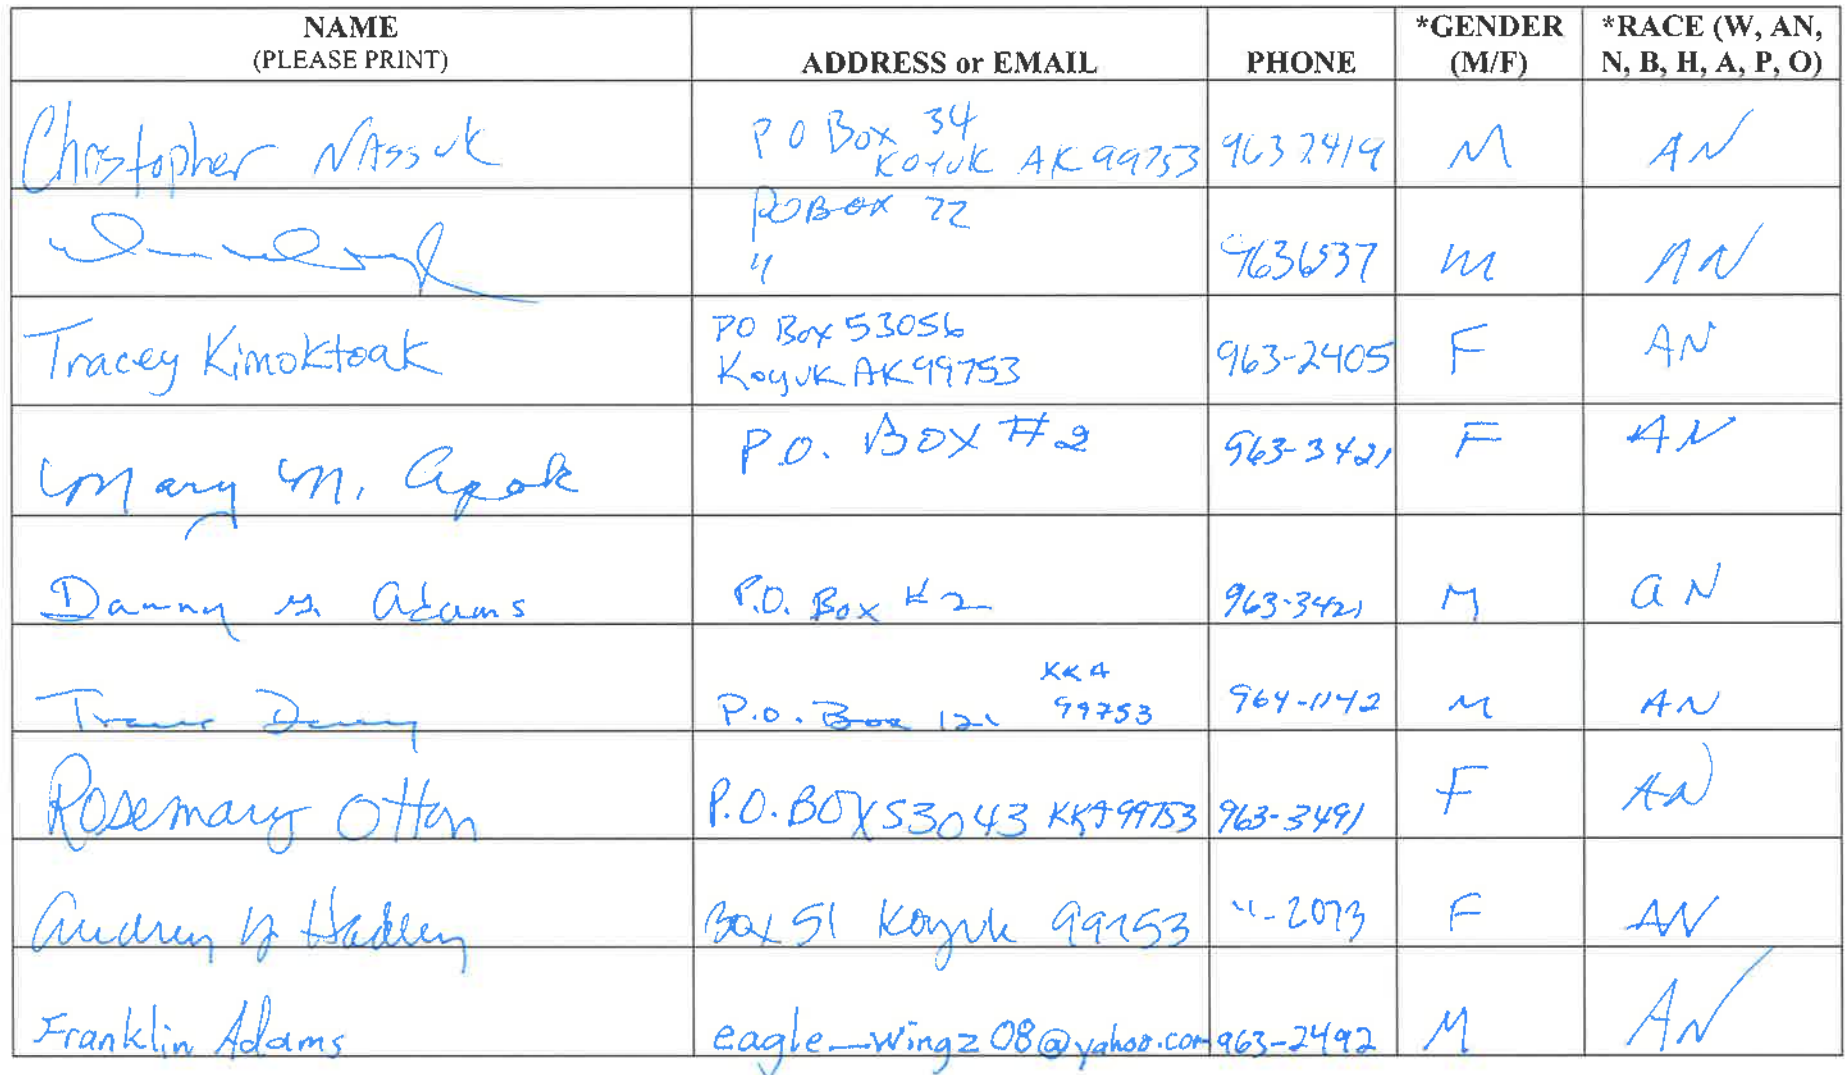 NAME
(PLEASE PRINT)
ADDRESS or EMAIL
PHONE
*GENDER
(M/F)
*RACE (W, AN,
N, B, H, A, P, O)
Christopher NAssuk
P O Box 34
Koyuk AK 99753
963 2419
M
AN
PO Box 22
"
9636537
M
AN
Tracey Kimoktoak
PO Box 53056
Koyuk AK 99753
963-2405
F
AN
Mary M. Apok
P.O. BOX #2
963-3421
F
AN
Danny Adams
P.O. Box #2
963-3421
M
AN
P.O. Box
KKA
99753
964-1142
M
AN
Rosemary Otton
P.O. BOX 53043 KKA 99753
963-3491
F
AN
Audrey Hadley
Box 51 Koyuk 99753
"-2073
F
AN
Franklin Adams
eagle_wingz08@yahoo.com
963-2492
M
AN